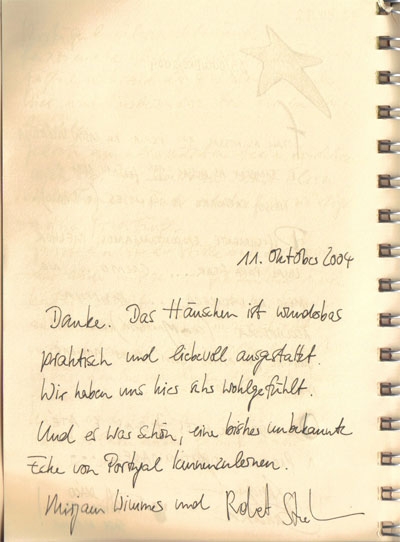 11. Oktober 2004
Danke. Das Häuschen ist wunderbar
praktisch und liebevoll ausgestattet.
Wir haben uns hier sehr wohlgefühlt.
Und es war schön, eine bisher unbekannte
Ecke von Portugal kennenzulernen.
Mirjam Wimmer und Robert